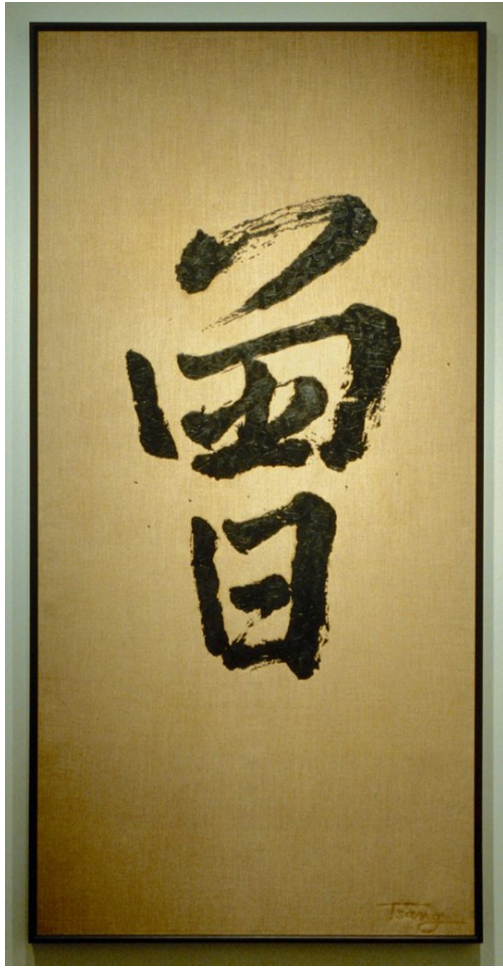 曾
Tsang